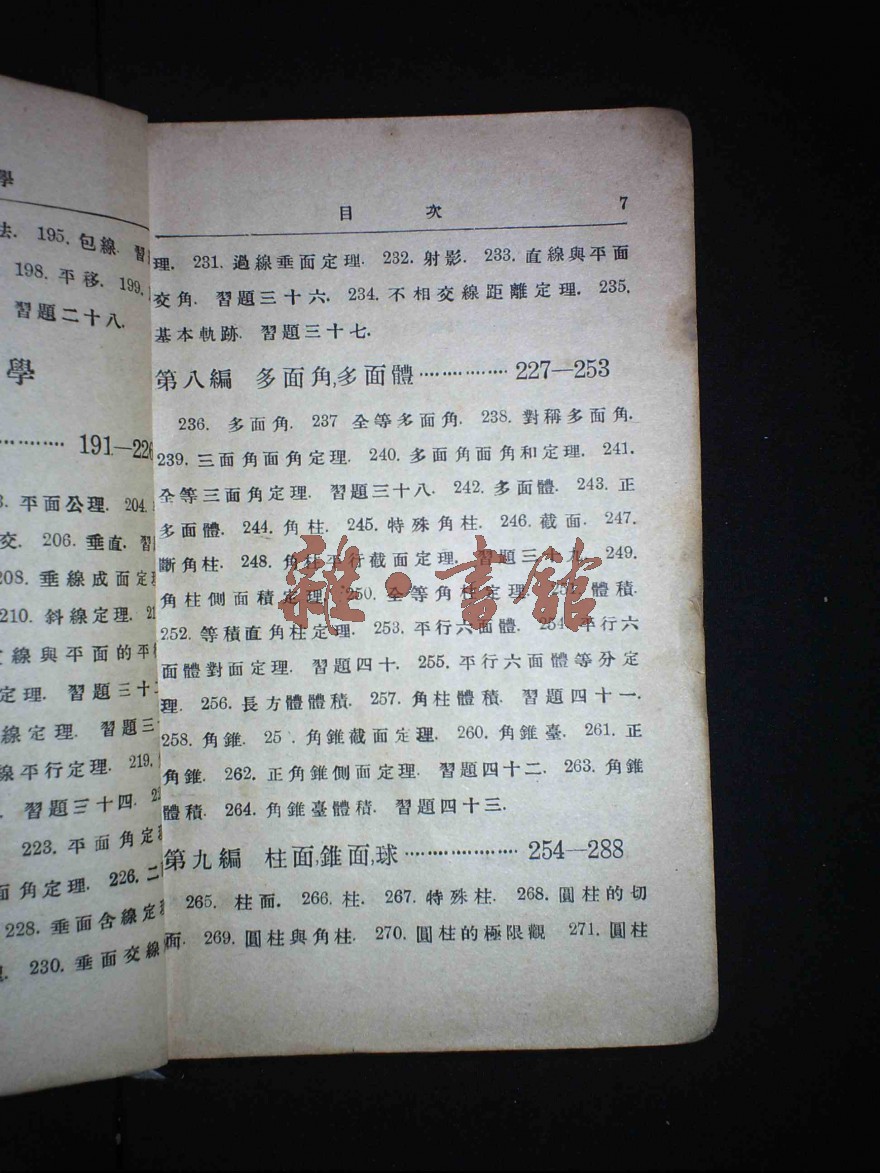 學
法. 195. 包線. 習
198. 平移. 199.
習題二十八.
學
191—226
平面公理. 204.
交. 206. 垂直. 習
208. 垂線成面定理
210. 斜線定理.
線與平面的平行
定理. 習題三十
線定理. 習題三
線平行定理. 219.
習題三十四.
223. 平面角定
面角定理. 226. 二
228. 垂面含線定
230. 垂面交線
目 次 7
理. 231. 過線垂面定理. 232. 射影. 233. 直線與平面
交角. 習題三十六. 234. 不相交線距離定理. 235.
基本軌跡. 習題三十七.
第八編 多面角,多面體 ⋯⋯⋯⋯⋯ 227—253
236. 多面角. 237 全等多面角. 238. 對稱多面角.
239. 三面角面角定理. 240. 多面角面角和定理. 241.
全等三面角定理. 習題三十八. 242. 多面體. 243. 正
多面體. 244. 角柱. 245. 特殊角柱. 246. 截面. 247.
斷角柱. 248. 角柱平行截面定理. 習題三十九. 249.
角柱側面積定理. 250. 全等角柱定理. 251. 體積.
252. 等積直角柱定理. 253. 平行六面體. 254. 平行六
面體對面定理. 習題四十. 255. 平行六面體等分定
理. 256. 長方體體積. 257. 角柱體積. 習題四十一.
258. 角錐. 25 . 角錐截面定理. 260. 角錐臺. 261. 正
角錐. 262. 正角錐側面定理. 習題四十二. 263. 角錐
體積. 264. 角錐臺體積. 習題四十三.
第九編 柱面,錐面,球 ⋯⋯⋯⋯⋯⋯ 254—288
265. 柱面. 266. 柱. 267. 特殊柱. 268. 圓柱的切
面. 269. 圓柱與角柱. 270. 圓柱的極限觀 271. 圓柱
雜·書館